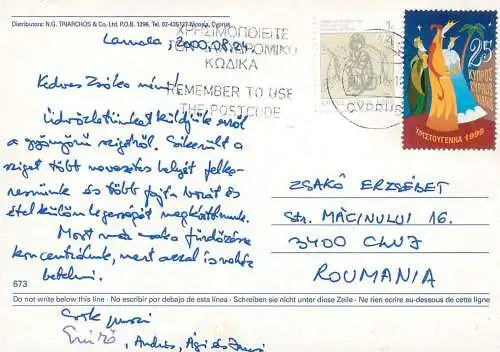 Distributors: N.G. TRIARCHOS & Co. Ltd, P.O.B. 1296, Tel. 02- Nicosia, Cyprus
2000.08.24.
ΧΡΗΣΙΜΟΠΟΙΕΙΤΕ
ΚΩΔΙΚΑ
REMEMBER TO USE
THE POSTCODE
CYPRUS
25
ΚΥΠΡΟΣ
ΧΡΙΣΤΟΥΓΕΝΝΑ 1999
Kedves Zsóka néni!
Üdvözletünket küldjük erről
a gyönyörű szigetről. Sikerült a
sziget több nevezetes helyét felke-
resnünk és több fajta borát és
étel különlegességét megkóstolnunk.
Most már csak a fürdőzésre
koncentrálunk, mert azzal is
betelni.
ZSAKÓ ERZSÉBET
Str. MĂCINULUI 16.
3400 CLUJ
ROUMANIA
673
Do not write below this line - No escribir por debajo de esta línea - Schreiben sie nicht unter diese Zeile - Ne rien ecrire au-dessous de cette ligne
András, Ági és